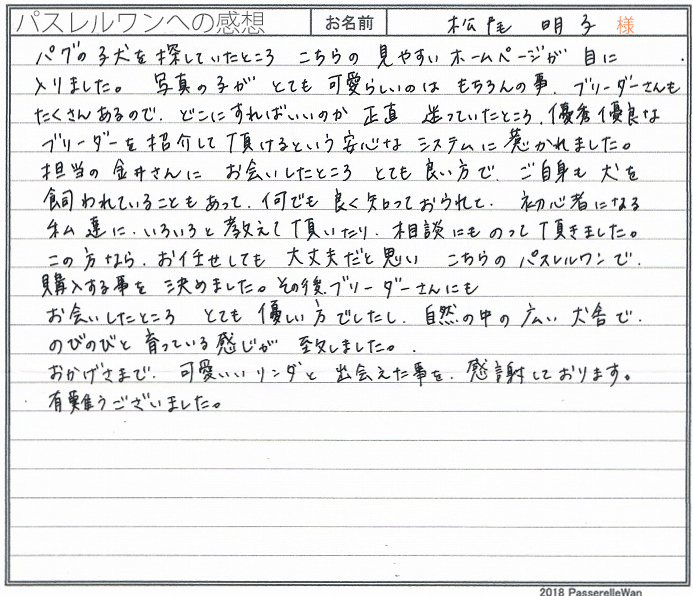 パスレルワンへの感想 お名前 松尾 明子 様
パグの子犬を探していたところ こちらの 見やすい ホームページが 目に
入りました。 写真の子が とても 可愛らしいのは もちろんの事、ブリーダーさんも
たくさんあるので、どこにすればいいのか 正直 迷っていたところ、優秀優良な
ブリーダーを紹介して頂けるという安心な システムに惹かれました。
担当の金井さんに お会いしたところ とても良い方で、ご自身も犬を
飼われていることもあって、何でも良く知っておられて、 初心者になる
私達に、いろいろと教えて頂いたり、相談にものって頂きました。
この方なら、お任せしても 大丈夫だと思い こちらの パスレルワンで、
購入する事を 決めました。その後、ブリーダーさんにも
お会いしたところ とても 優しい方でしたし、自然の中の広い犬舎で、
のびのびと育っている感じが 致しました。
おかげさまで、可愛いいリンダと 出会えた事を、感謝しております。
有難うございました。
2018 PasserelleWan